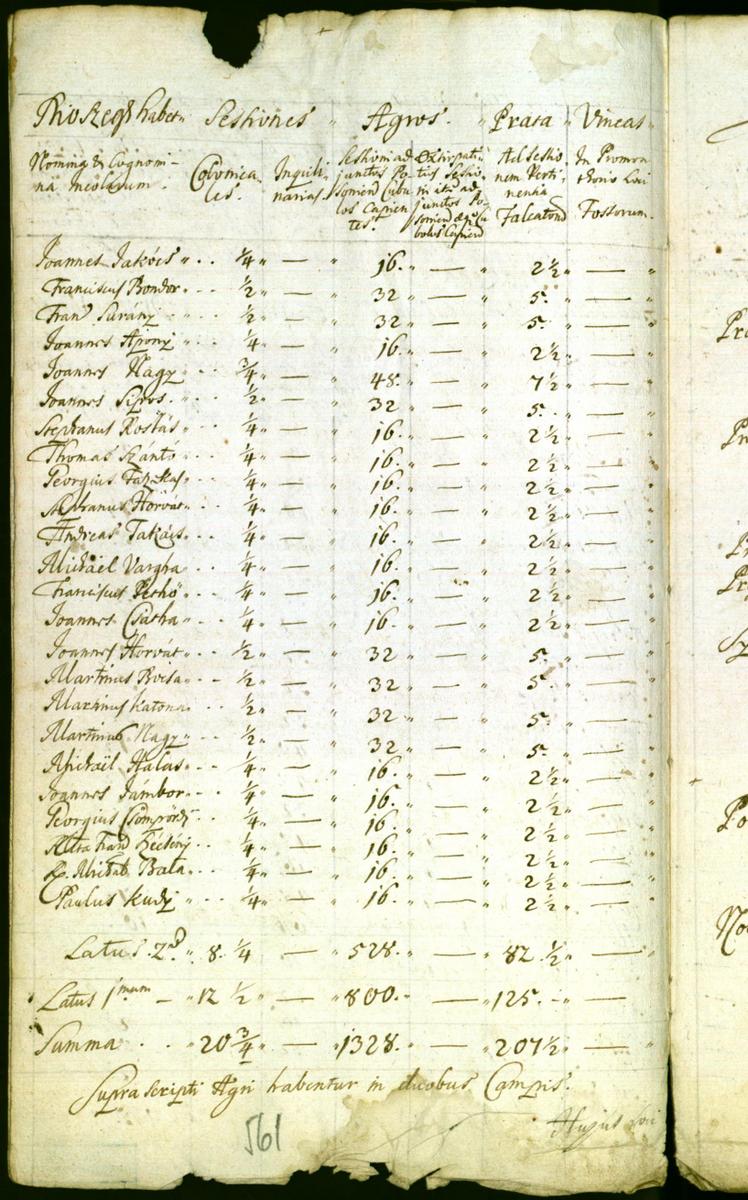 Possegȷ̃ habet Sessiones Agros Prata Vineas
Nomina & Cognomina Incolarum. Colonicales. Inquilinarias. Sessioni adjunctos Posonien Cubulos Capientes. Extirpatitios Sessioni itid adjunctos Posonien Cubulos Capiend Ad Sessionem Pertinentia Falcatorũ In Promonthorio Loci Fossorum.
Joannes Takács " . . ¼ " — " 16. " — " 2 ½ " — "
Franciscus Bondor . . ½ " — " 32 " — " 5. " — "
Fran Surány . . ½ " — 32 " — " 5. " — "
Joannes Apony . . ¼ — 16. " — " 2 ½ " — "
Joannes Nagy . . ¾ — 48. " — " 7 ½ " — "
Joannes Sipos . . . ½ — 32 — " 5. . — "
Stephanus Rostás . . ¼ — 16. " — " 2 ½ " — "
Thomas Szántó . . ¼ — 16. " — " 2 ½ " — "
Georgius Fazekas . . ¼ — 16. " — " 2 ½ " — "
Stephanus Horvát . . ¼ — 16. " — " 2 ½ " — "
Andreas Takács . . ¼ — 16. " — " 2 ½ " — "
Michael Vargha . . ¼ — 16. " — " 2 ½ " — "
Franciscus Peshö . . ¼ — 16. " — " 2 ½ " — "
Joannes Csatha . . ¼ — 16. " — " 2 ½ " — "
Joannes Horvát . . ½ " — 32 " — " 5. — "
Martinus . . ½ " — 32 " — " 5. — "
Martinus Katona . . ½ " — 32 " — " 5. — "
Martinus Nagy . . ½ " — 32 " — " 5. " — "
Michael Halas . . ¼ " — 16. " — " 2 ½ " — "
Joannes Jambor . . ¼ " — 16. " — " 2 ½ " — "
Georgius . . ¼ " — 16. " — " 2 ½ " — "
. . ¼ " — 16. " — " 2 ½ " — "
Michael Bata . . ¼ " — 16. " — " 2 ½ " — "
Paulus Kudy " . . ¼ " — 16. " — " 2 ½ " — "
Latus 2d. " 8. ¼ — " 528. " — " 82 ½ " — "
Latus 1mum — " 12 ½ " — " 800. " — " 125. — " — "
Summa . . " 20 ¾ " — " 1328. " — " 207½ " — "
Supra scripti Agri habentur in duobus Campis.
Hujus Loci
561